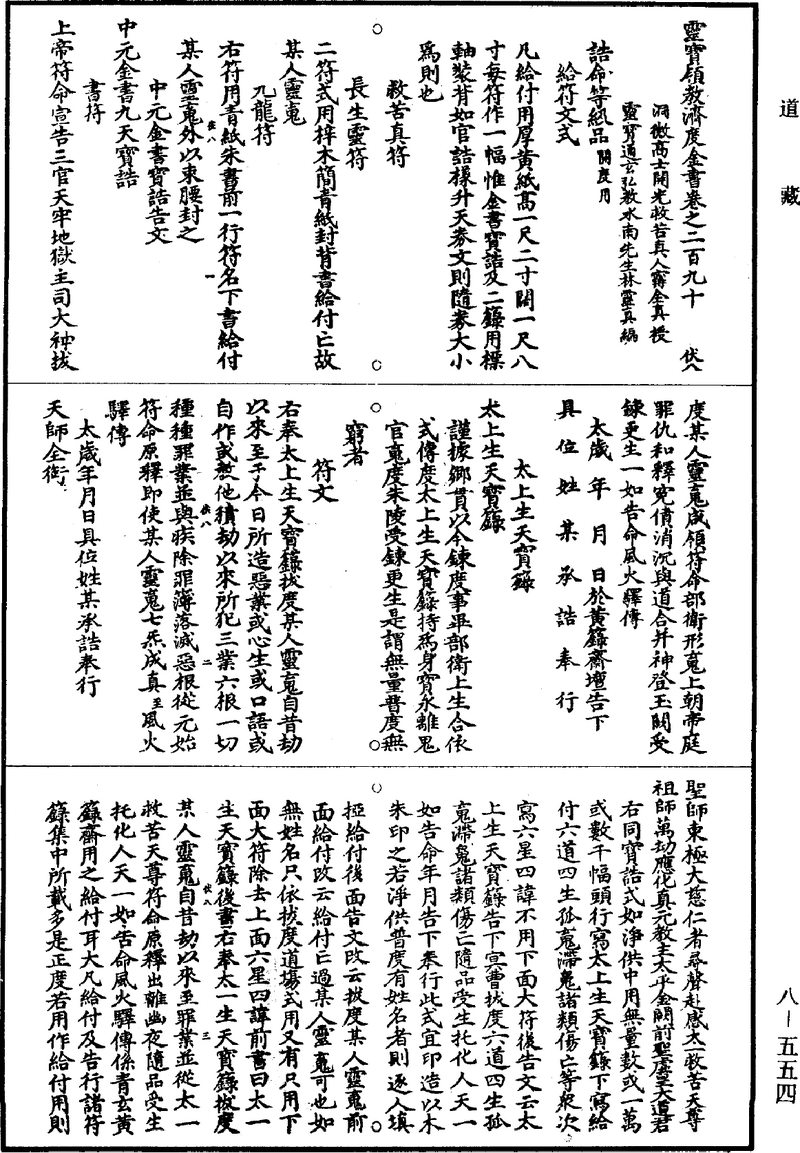 道藏
靈寶領教濟度金書卷之二百九十 伏八
洞微高士開光救苦真人甯全真授
靈寶通玄弘教水南先生林靈真編
誥命等級品 開度用
給符文式
凡給付用厚黄紙高一尺二寸闊一尺八
寸每符作一幅惟金書寶誥及二籙用標
軸裝背如官誥樣升天券文則隨券大小
爲則也
救苦真符
長生靈符
二符式用梓木簡青紙封背書給付亡故
某人靈䰟
九龍符
右符用青紙朱書前一行符名下書給付
某人靈䰟外以束腰封之
伏八 一
中元金書寶誥告文
中元金書九天寶誥
書符
上帝符命宣告三官天牢地獄主司大神拔
度某人靈䰟咸領符命部衛形䰟上朝帝庭
罪仇和釋冤債消沉與道合并神登玉闕受
鍊更生一如告命風火驛傳
太歲年月日於黄籙齋壇告下
具位姓某承誥奉行
太上生天寶籙
太上生天寶籙
謹據鄉貫以今鍊度事畢部衛上生合依
式傳度太上生天寶籙持爲身寶永離鬼
官䰟度朱陵受鍊更生是謂無量普度無
窮者
符文
右奉太上生天寶籙拔度某人靈䰟自昔劫
以來至于今日所造惡業或心生或口語或
自作或教他積劫以來所犯三業六根一切
伏八 二
種種罪業並與赦除罪簿落滅惡根從元始
符命原釋即使某人靈䰟七炁成真至風火
驛傳
太歲年月日具位姓某承誥奉行
天師全銜
聖師東極大慈仁者尋聲赴感太一救苦天尊
祖師萬劫應化真元教主太乎金闕前聖虛天道君
右同寶誥式如淨供中用無量數或一萬
或數千幅頭行寫太上生天寶籙下寫給
付六道四生孤䰟滯魄諸類傷亡等衆次
寫六星四諱不用下面大符後告文云太
上生天寶籙告下冥曹拔度六道四生孤
䰟滯魄諸類傷亡隨品受生托化人天一
如告命年月告下奉行此式宜印造以木
朱印之若淨供普度有姓名者則逐人填
掗給付後面告文改云拔度某人靈䰟前
面給付改云給付亡過某人靈䰟可也如
無姓名只依拔度道場式用又有只用下
面大符除去上面六星四諱前書曰太一
生天寶籙後書右奉太一生天寶籙拔度
伏八 三
某人靈䰟自昔劫以來至罪業並從太一
救苦天尊符命原釋出離幽夜隨品受生
托化人天一如告命風火驛傳係青玄黄
籙齋用之給付耳大凡給付及告行諸符
籙集中所載多是正度若用作給付用則
八－五五四